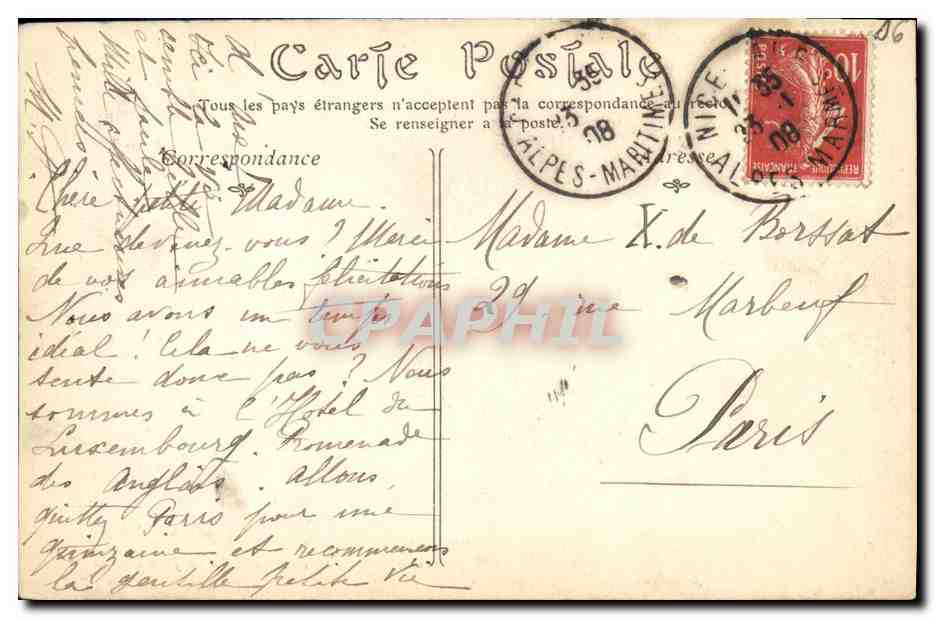 Carte Postale
Tous les pays étrangers n'acceptent pas la correspondance au recto
Se renseigner à la poste.
Correspondance
Adresse
Chère petite Madame.
Que devenez-vous? Merci
de vos aimables félicitations
Nous avons un temps
idéal! Cela ne vous
tente donc pas? Nous
sommes à l'Hotel du
Luxembourg. Promenade
des Anglais. Allons,
quittez Paris pour une
quinzaine et recommencons
la gentille petite vie
d
et
Mille
Madame X. de Borssat
29, rue Marbeuf
Paris
ALPES-MARITIMES
35
08
NICE
35
08
10c
POSTES
REPUBLIQUE FRANÇAISE
CPAPHIL
D6